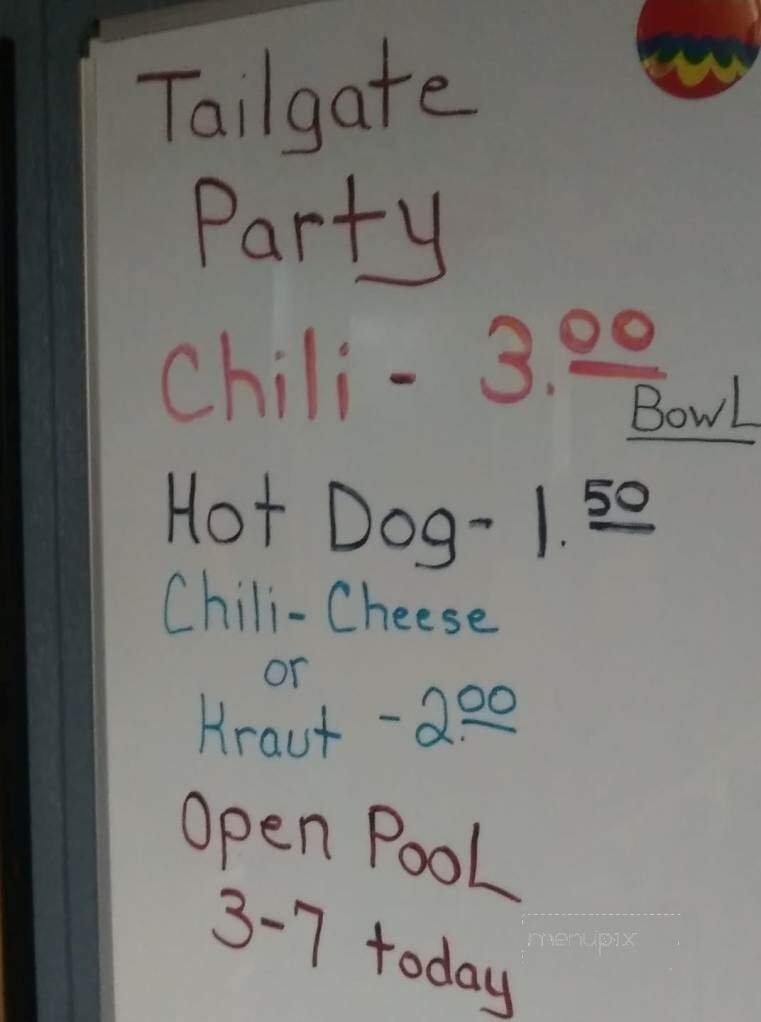 Tailgate
Party
Chili - 3.00
Bowl
Hot Dog - 1.50
Chili-Cheese
or
Kraut - 2.00
Open Pool
3-7 today
menupix